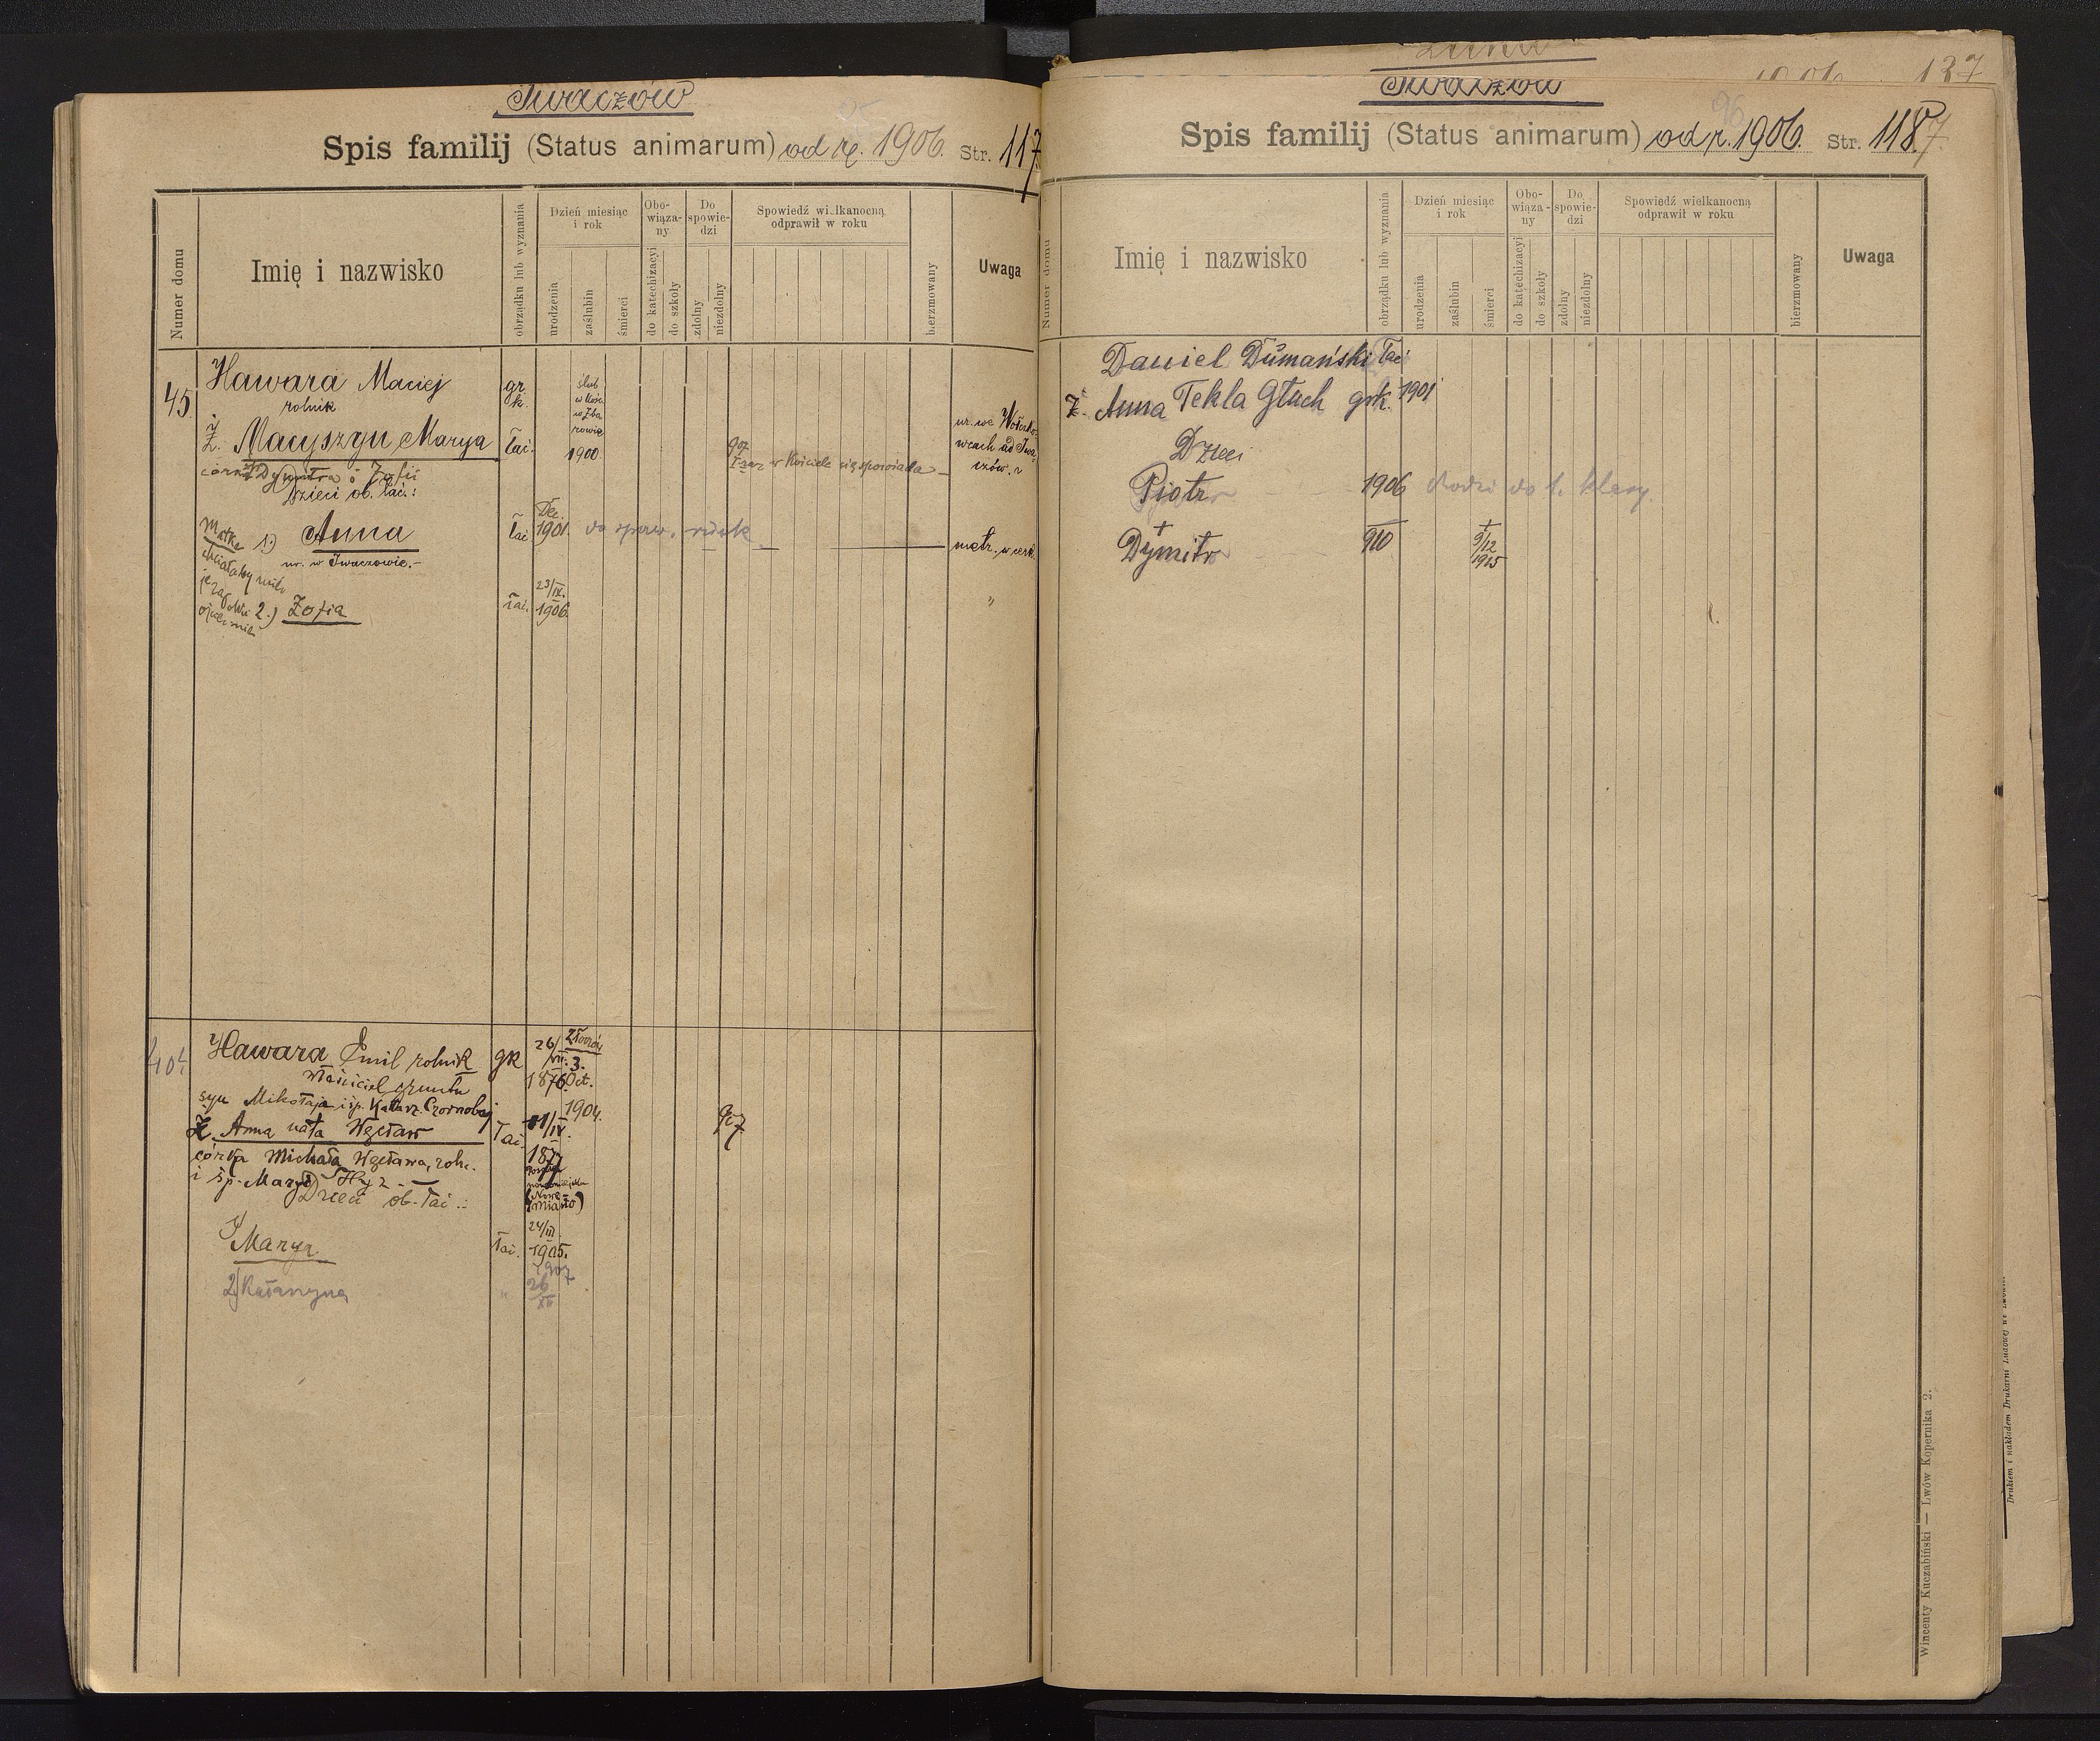 Iwaczów
Spis familij (Status animarum) od r. 1906. Str. 117
Numer domu
Imię i nazwisko
obrządku lub wyznania
Dzień miesiąc i rok
urodzenia
zaślubin
śmierci
Obo-wiąza-ny
do katechizacyi
do szkoły
Do spowie-dzi
zdolny
niezdolny
Spowiedź wielkanocną odprawił w roku
bierzmowany
Uwaga
45. Hawara Maciej gr k.
rolnik
ślub
1900.
Ż. Macyszyn Marya łac.
córka Dymitra i Zofii
Dzieci ob. łac.:
907
I raz w Kościele się spowiada
Matka
1) Anna łac. Dec. 1901. metr. w cerk.
ur. w Iwaczowie.-
2.) Zofia łac. 23/IX. 1906. "
Hawara Emil rolnik gk 26/VII. 1876
właściciel gruntu
Złoczów 3. Oct. 1904.
syn Mikołaja i śp. Katarz. Czornobaj
Ż. Anna nata Węcław łac. 1877
córka Michała Węcława, roln.
i śp. Maryi Hyz
907
Dzieci ob. łac.:
1) Marya łac. 24/III. 1905.
2) Katarzyna " 1907 26/XII
127
Iwaczów
Spis familij (Status animarum) od r. 1906. Str. 118.
Numer domu
Imię i nazwisko
obrządku lub wyznania
Dzień miesiąc i rok
urodzenia
zaślubin
śmierci
Obo-wiąza-ny
do katechizacyi
do szkoły
Do spowie-dzi
zdolny
niezdolny
Spowiedź wielkanocną odprawił w roku
bierzmowany
Uwaga
Daniel Dumański łac
Ż. Anna Tekla Głuch grk. 1901
Dzieci
Piotr 1906 chodzi do I. klasy.
† Dymitr 910 † 9/12 1915
Wincenty Kuczabiński — Lwów Kopernika 2.
Drukiem i nakładem Drukarni Ludowej we Lwowie.